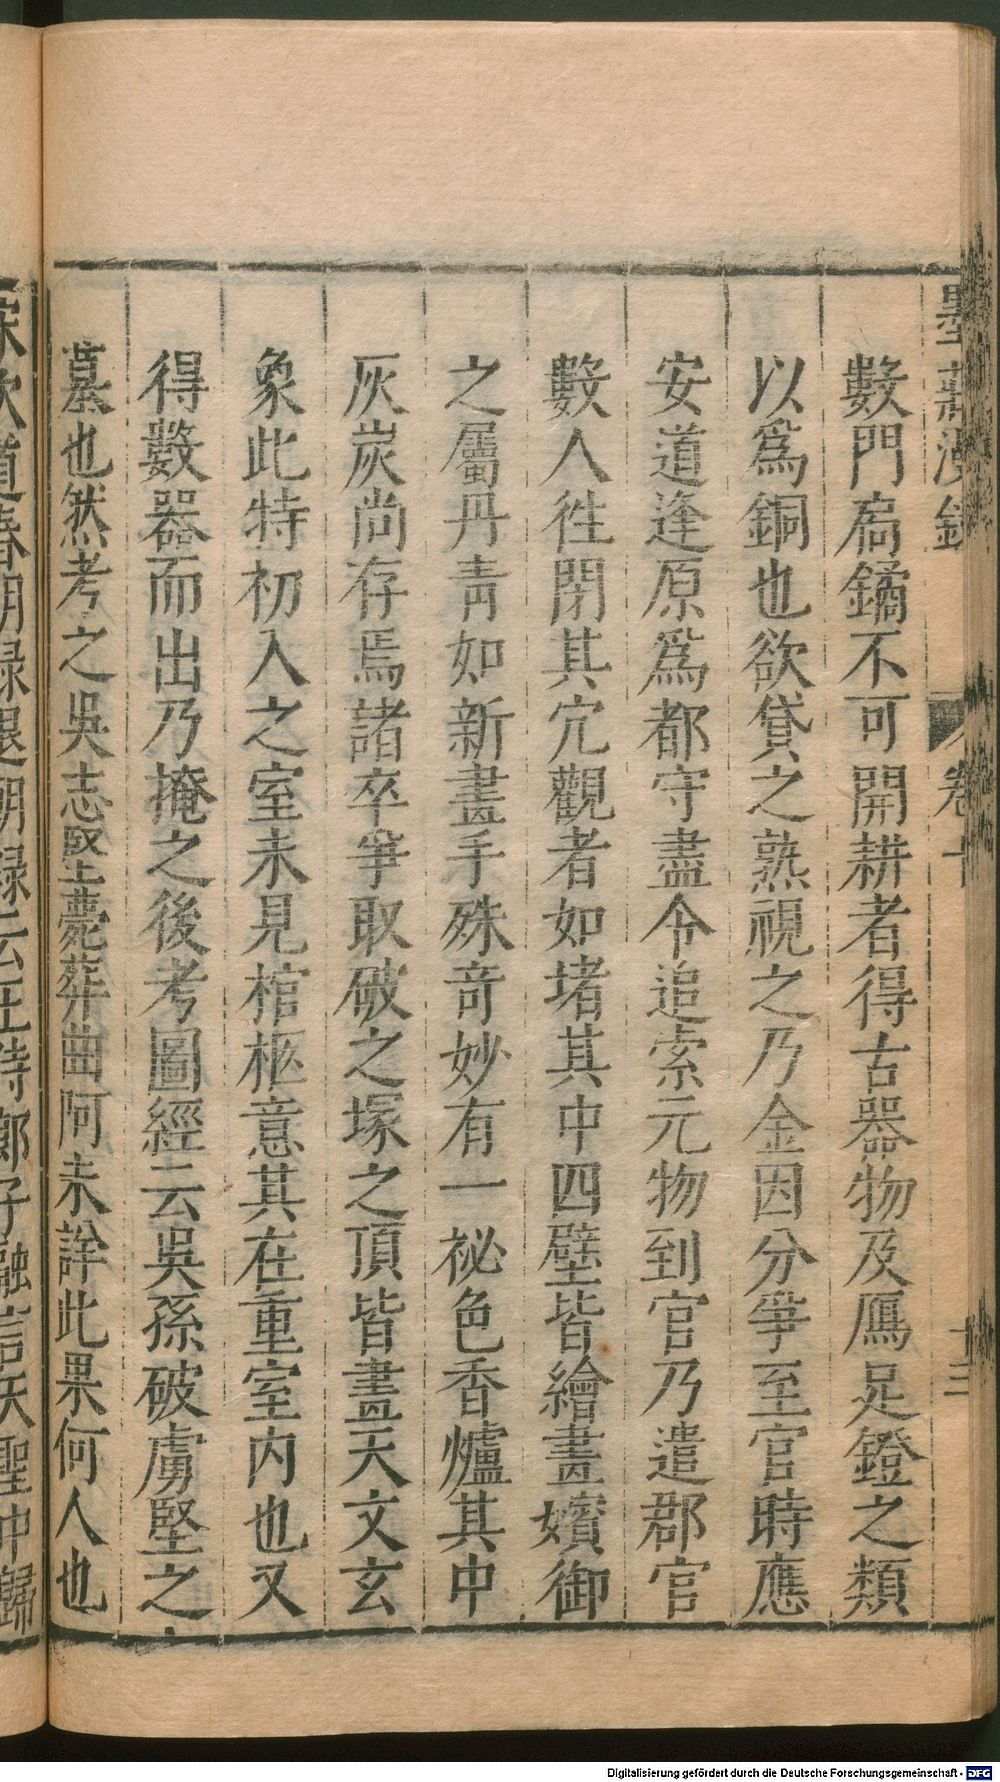 墨莊漫錄
卷十
十三
數門扃鐍不可開耕者得古器物及鴈足鐙之類
以爲銅也欲貸之熟視之乃金因分爭至官時應
安道逢原爲都守盡令追索元物到官乃遣郡官
數人徃閉其穴觀者如堵其中四壁皆繪畫嬪御
之屬丹青如新畫手殊奇妙有一祕色香爐其中
灰炭尚存焉諸卒爭取破之塚之頂皆畫天文玄
象此特初入之室未見棺柩意其在重室内也又
得數器而出乃掩之後考圖經云吳孫破虜堅之
墓也然考之吳志堅薨葬曲阿未詳此果何人也
宋次道春明録退朝録云王侍郎子融言天聖中歸
Digitalisierung gefördert durch die Deutsche Forschungsgemeinschaft - DFG